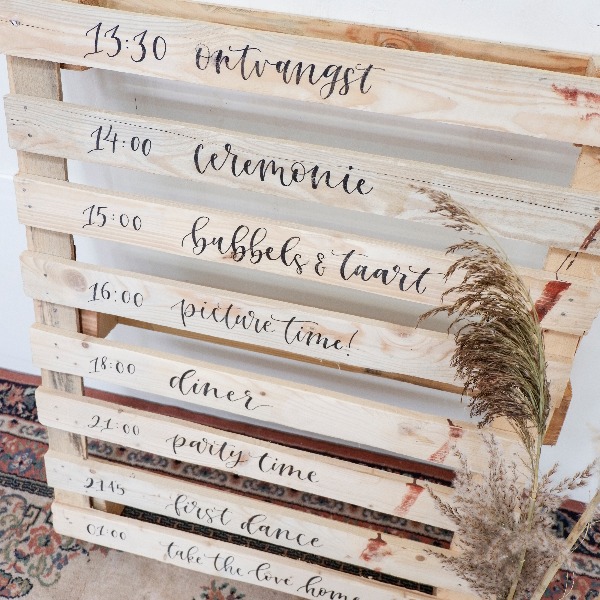 13:30 ontvangst
14:00 ceremonie
15:00 bubbels & taart
16:00 picture time!
18:00 diner
21:00 party time
21:15 first dance
01:00 take the love home